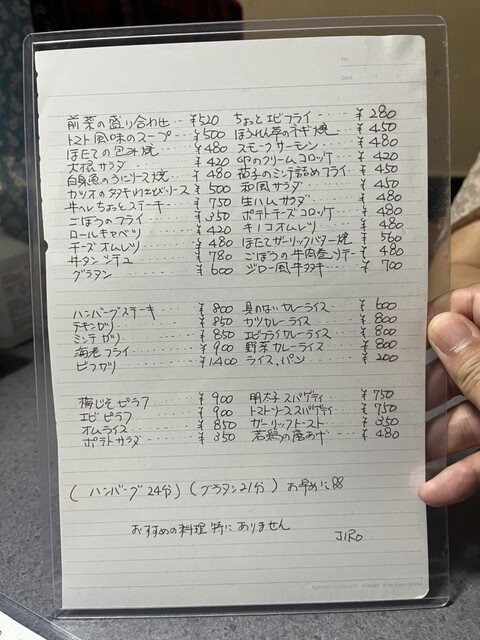 前菜の盛り合わせ … ¥520 ちょっとエビフライ … ¥280
トマト風味のスープ … ¥500 ほうれん草のネギ焼 … ¥450
ほたての包み焼 … ¥480 スモークサーモン … ¥480
大根サラダ … ¥420 カニのクリームコロッケ … ¥420
白身魚のうにソース焼 … ¥480 茄子のミンチ詰めフライ … ¥450
カツオのタタキわさびソース … ¥500 和風サラダ … ¥450
牛ヘレちょっとステーキ … ¥750 生ハムサラダ … ¥480
ごぼうのフライ … ¥350 ポテトチーズコロッケ … ¥480
ロールキャベツ … ¥420 キノコオムレツ … ¥480
チーズオムレツ … ¥480 ほたてガーリックバター焼 … ¥560
牛タンシチュー … ¥780 ごぼうの牛肉巻ソテー … ¥480
グラタン … ¥600 ジロー風牛タタキ … ¥700
ハンバーグステーキ … ¥800 具のないカレーライス … ¥600
チキンカツ … ¥850 カツカレーライス … ¥800
ミンチカツ … ¥850 エビフライカレーライス … ¥800
海老フライ … ¥900 野菜カレーライス … ¥800
ビフカツ … ¥1,400 ライス、パン … ¥200
梅じそピラフ … ¥900 明太子スパゲティ … ¥750
エビピラフ … ¥900 トマトソーススパゲティ … ¥750
オムライス … ¥850 ガーリックトースト … ¥350
ポテトサラダ … ¥350 若鶏の唐あげ … ¥480
(ハンバーグ 24分) (グラタン 21分) お早めに
おすすめの料理 特にありません
JIRO